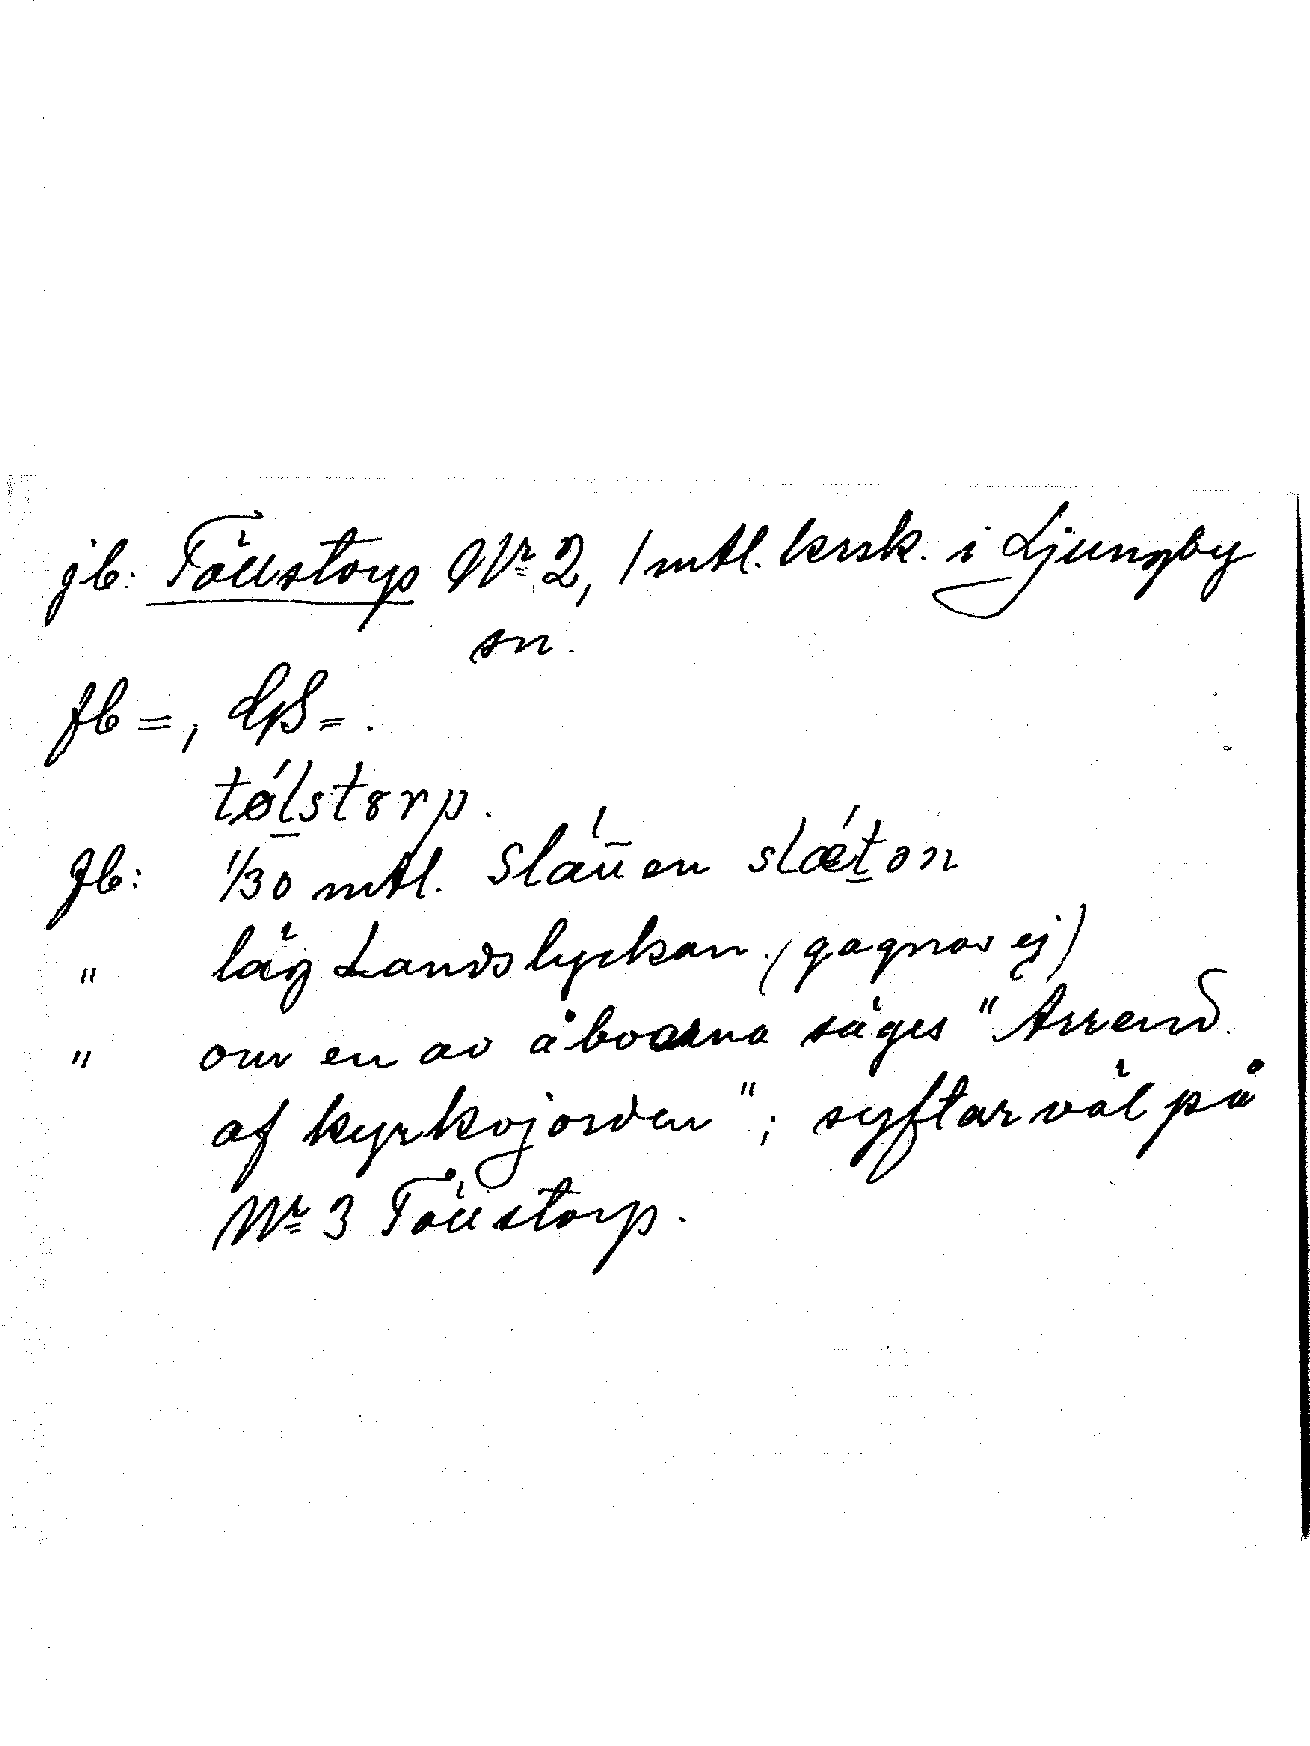 jb: Töllstorp Nr 2, 1 mtl. krsk. i Ljungby
sn.
fb =, GS = .
tølstorp.
Jb: 1/30 mtl. Slätten slæton
" läg Landslyckan (gagnar ej)
" om en av åboarna säges "Arrend.
af kyrkojorden"; syftar väl på
Nr 3 Töllstorp.